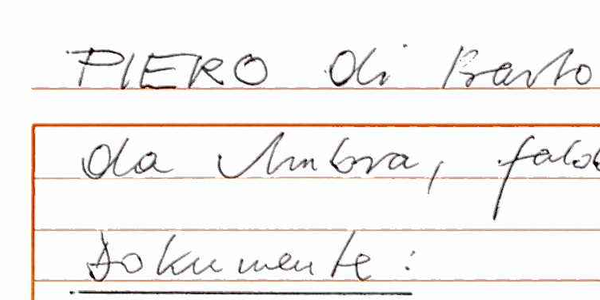 PIERO di Barto
da Ambra, fald
Dokumente: